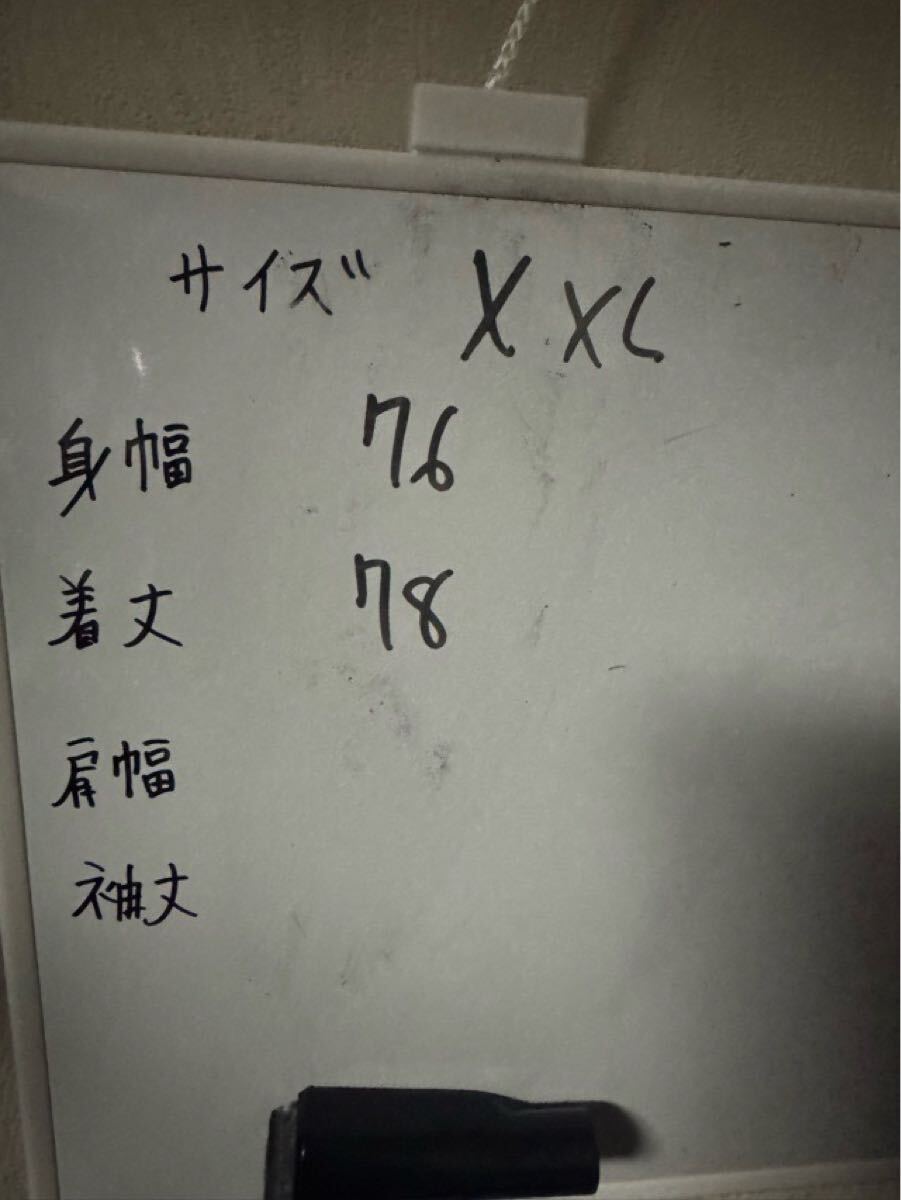 サイズ XXL
身幅 76
着丈 78
肩幅
袖丈